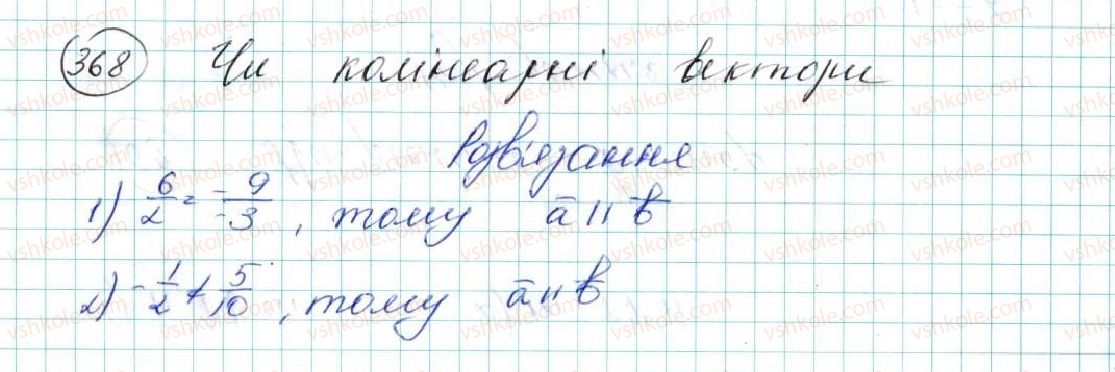 368 Чи колінеарні вектори
Розв'язання
1) 6/2 = -9/-3, тому a̅ || b̅
2) -1/2 ≠ 5/10, тому a̅ || b̅